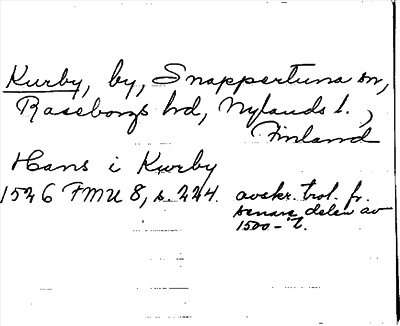 Kurby, by, Snappertuna sn,
Raseborgs hd, Nylands l.,
Finland
Hans i Kurby
1526 FMU 8, s. 224. avskr. trol. fr.
senare delen av
1500-t.